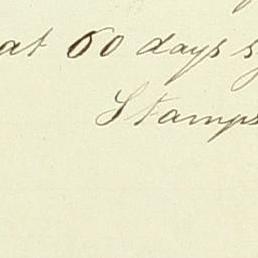 at 60 days s
Stamps